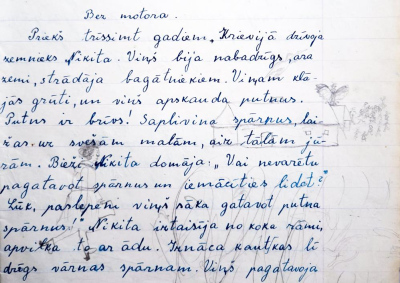 Bez motora.
Prieks trīssimt gadiem, Krievijā dzīvoja
zemnieks Ņikita. Viņš bija nabadzīgs, ara
zemi, strādāja bagātniekiem. Viņam klā-
jās grūti, un viņš apskauda putnus.
Putns ir brīvs! Saplivina spārnus, lai-
žas uz svešām malām, aiz tālām jū-
rām. Bieži Ņikita domāja: „Vai nevarētu
pagatavot spārnus un iemācīties lidot?"
Lūk, paslepeni viņš sāka gatavot putna
spārnus! Ņikita iztaisīja no koka rāmi,
apvilka to ar ādu. Iznāca kautkas lī-
dzīgs vārnas spārnam. Viņš pagatavoja